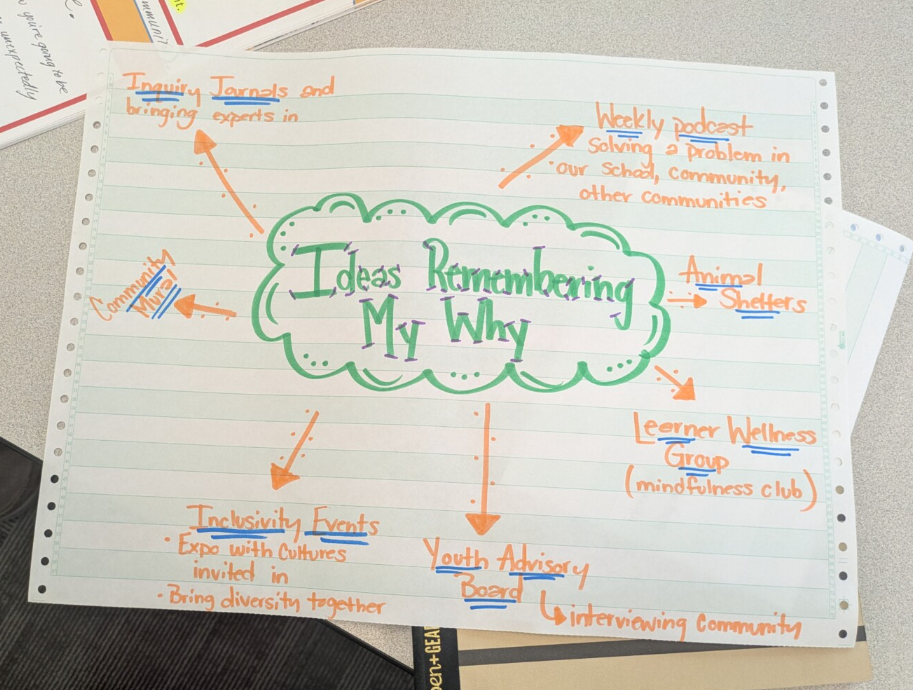 it.
e.
mmunit
you're going to be
unexpectedly
Inquiry Jornals and
bringing experts in
Weekly podcast
Solving a problem in
our school, community,
other communities
Community
Mural
Ideas Remembering
My Why
Animal
Shelters
Learner Wellness
Group
(mindfulness club)
Inclusivity Events
· Expo with Cultures
invited in
· Bring diversity together
Youth Advisory
Board
interviewing Community
pen+GEAR